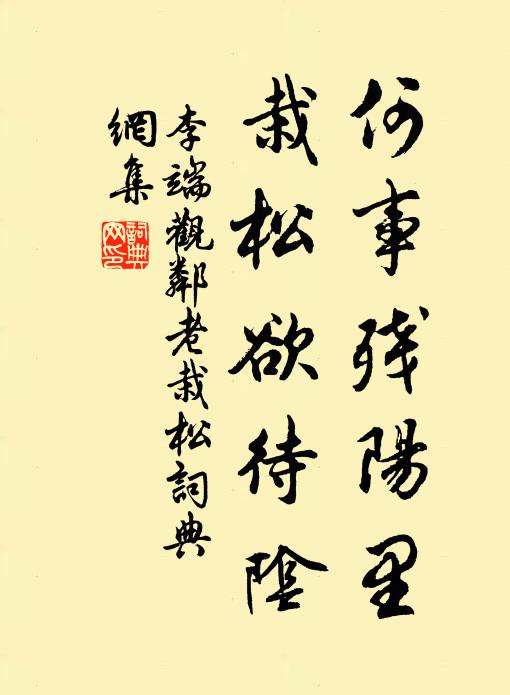 何事残陽里
栽松欲待陰
李端觀鄰老栽松詞典
網集
詞典網印